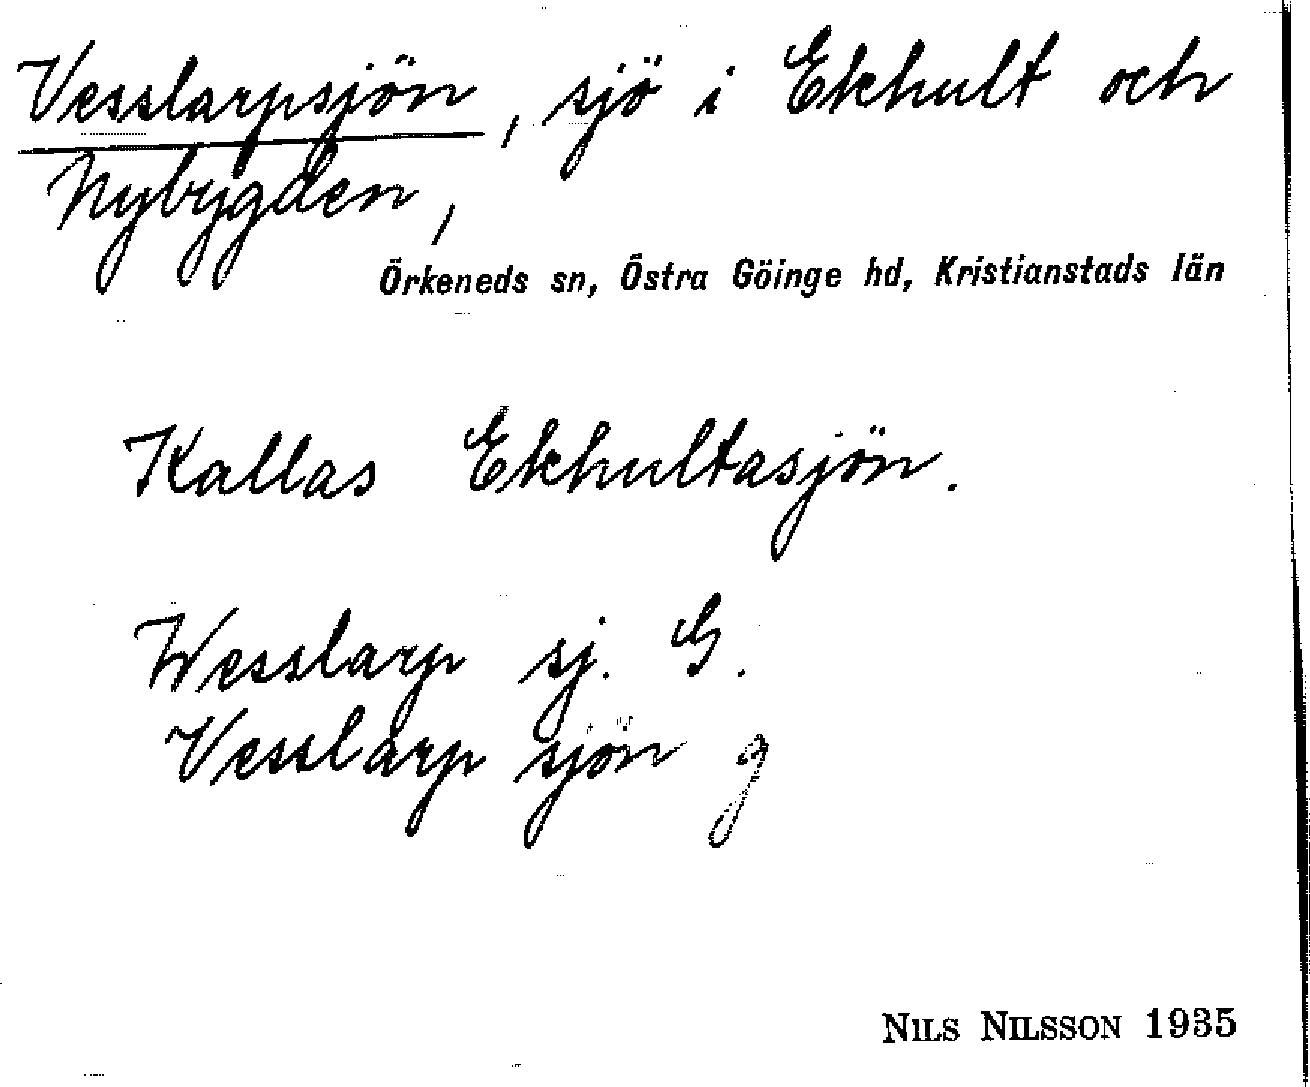 Vesslarpsjön, sjö i Ekhult och
Nybygden,
Örkeneds sn, Östra Göinge hd, Kristianstads län
Kallas Ekhultasjön.
Wesslarp sj. G.
Vesslarp sjön g
NILS NILSSON 1935